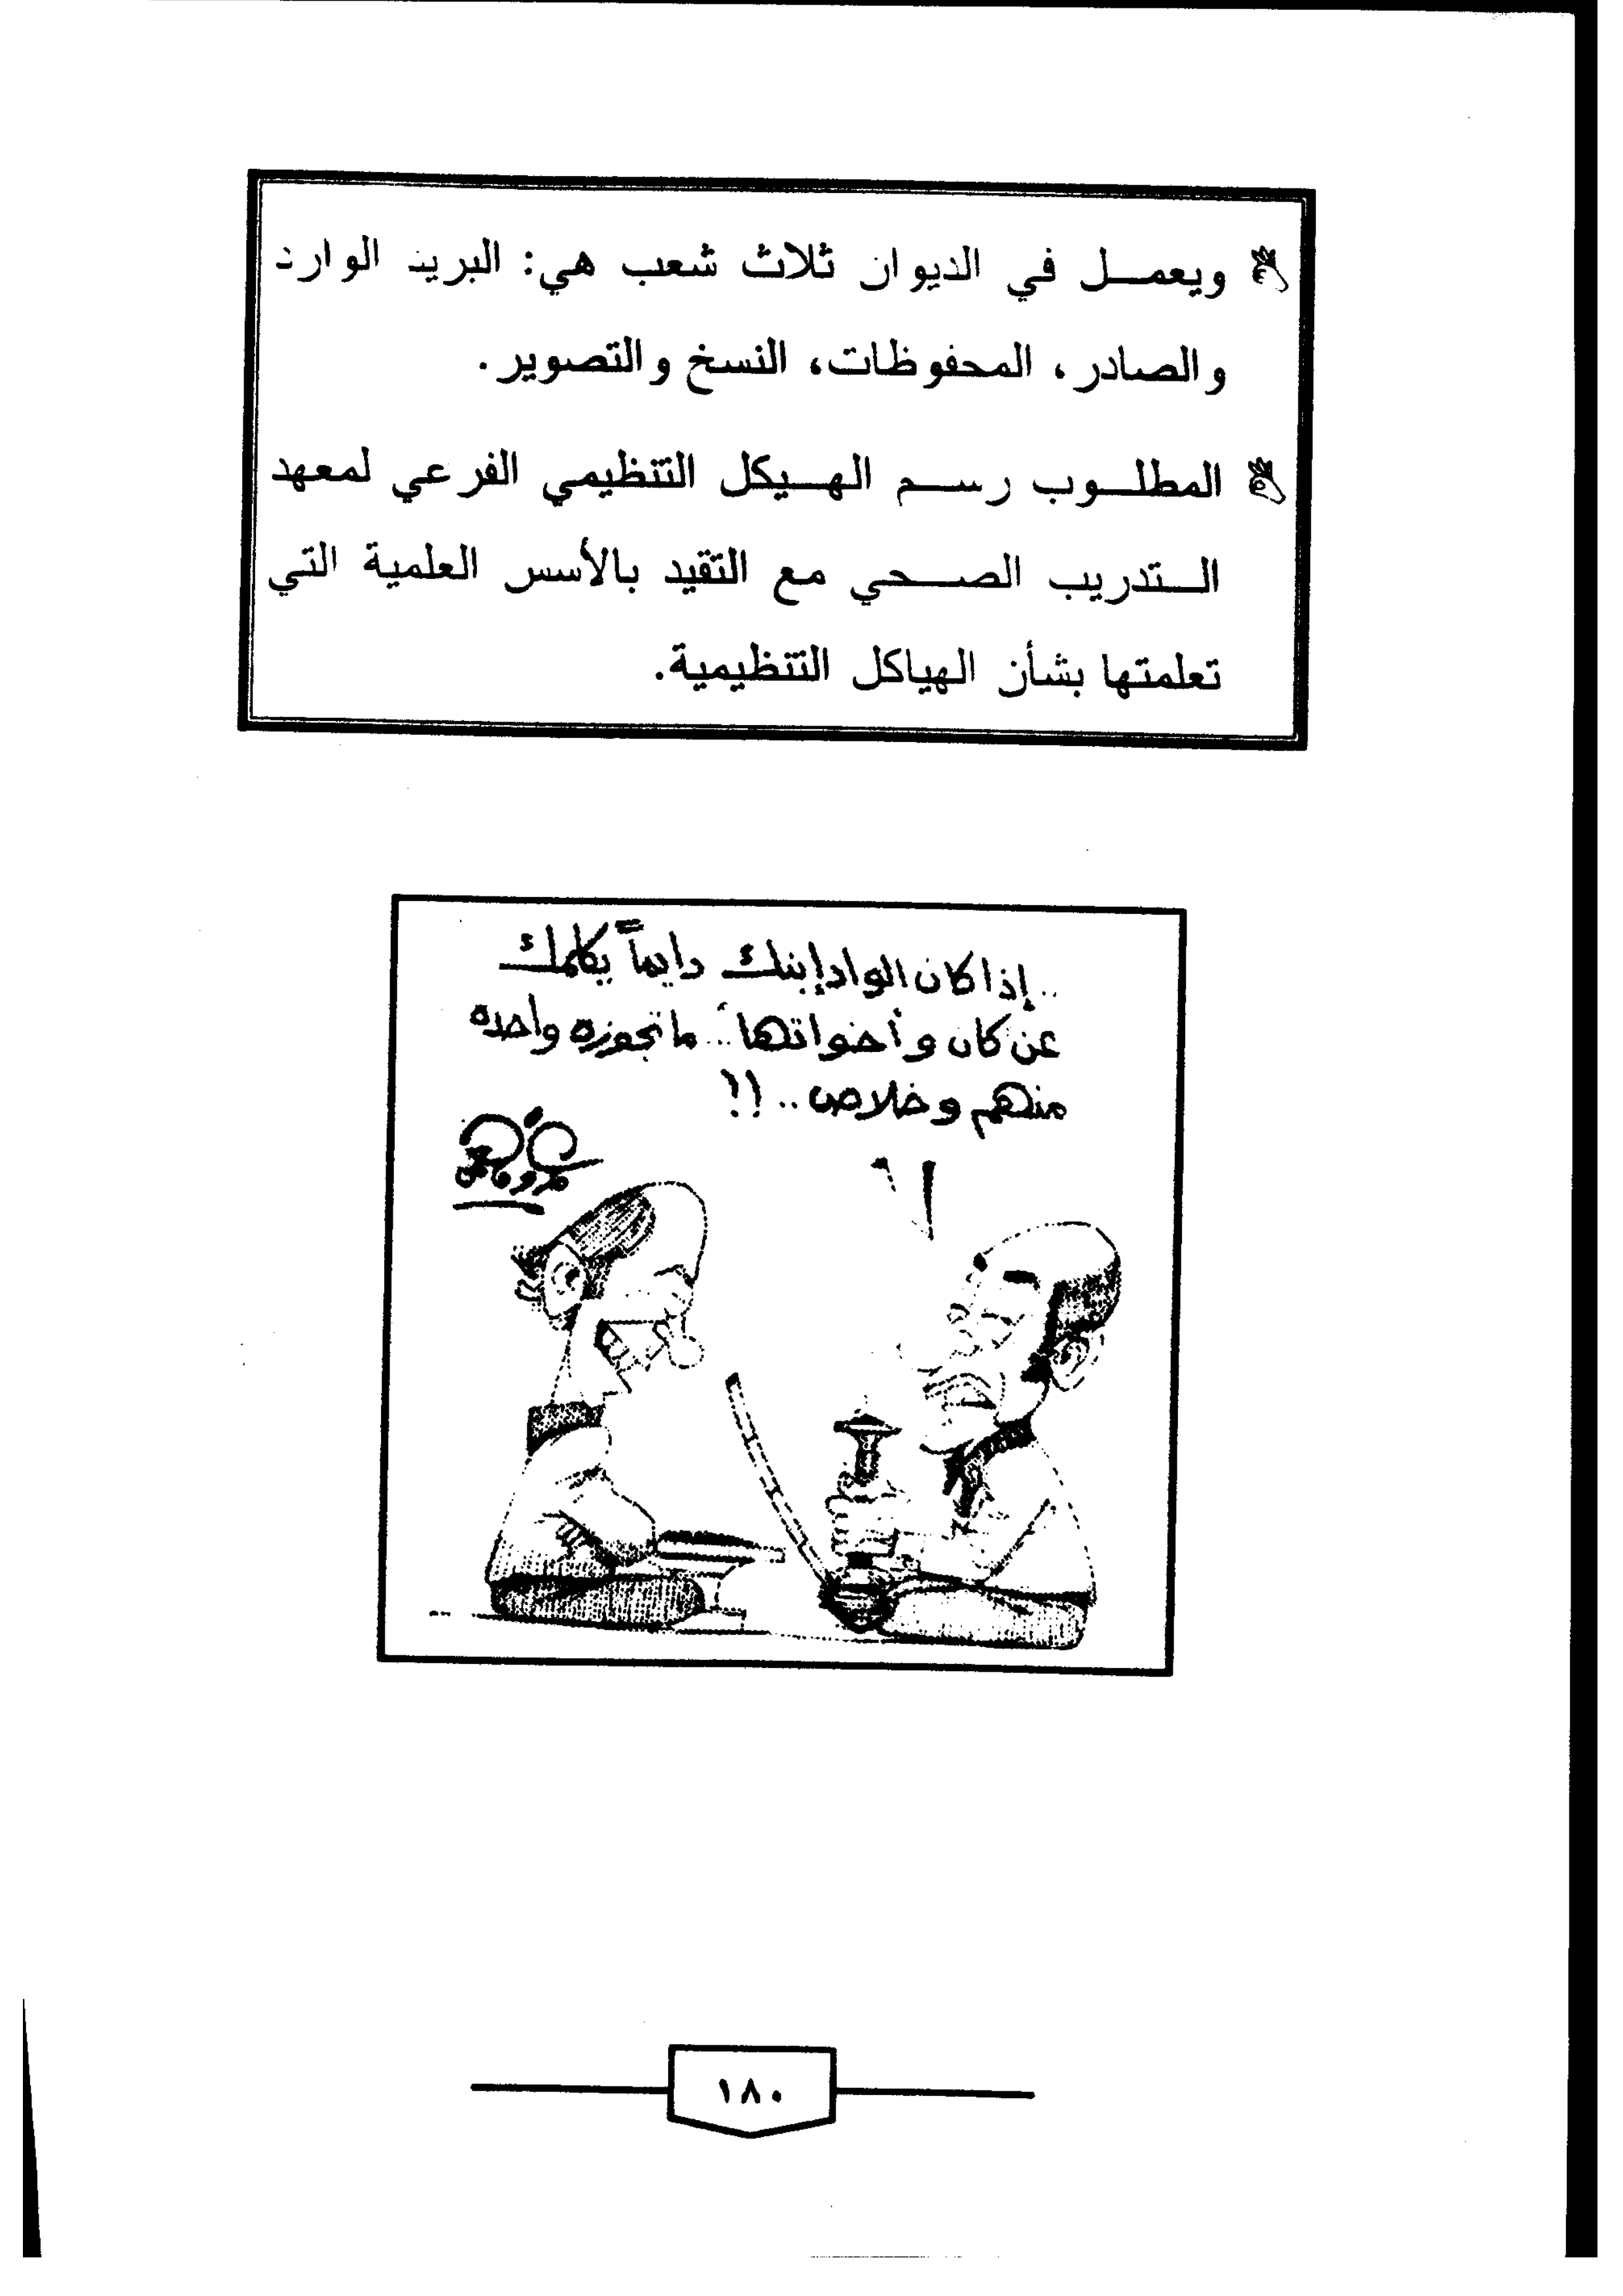 ويعمل في الديوان ثلاث شعب هي: البريد الوارد
والصادر، المحفوظات، النسخ والتصوير.
المطلوب رسم الهيكل التنظيمي الفرعي لمعهد
التدريب الصحي مع التقيد بالأسس العلمية التي
تعلمتها بشأن الهياكل التنظيمية.
..إذا كان الواد إبنك دايماً يكلمك
عن كان وأخواتها.. ما تجوزه واحده
منهم وخلاص..!!
١٨٠